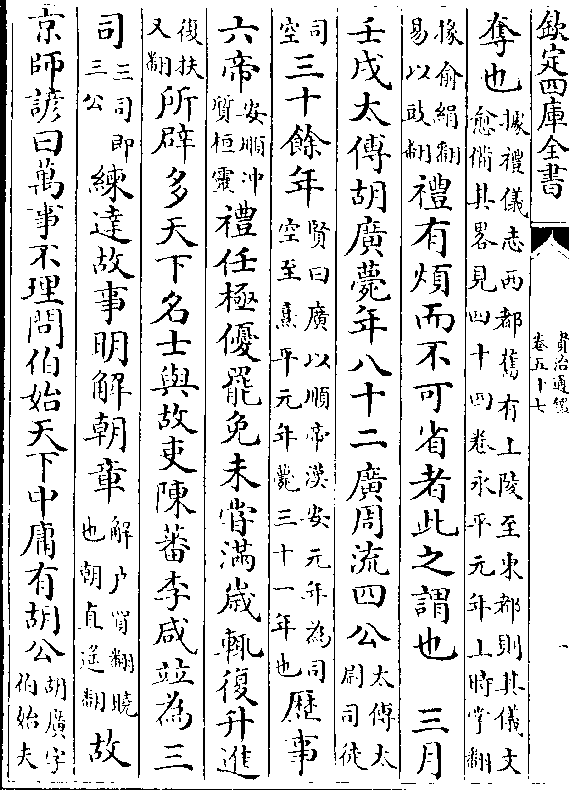 欽定四庫全書
資治通鑑
卷五十七
奪也據禮儀志西都舊有上陵至東都則其儀文
愈備其畧見四十四卷永平元年上時掌翻
掾俞絹翻
易以豉翻禮有煩而不可省者此之謂也 三月
壬戌太傅胡廣薨年八十二廣周流四公太傅太
尉司徒
司
空三十餘年賢曰廣以順帝漢安元年為司
空至熹平元年薨三十一年也歴事
六帝安順冲
質桓靈禮任極優罷免未嘗滿歲輒復升進
復扶
又翻所辟多天下名士與故吏陳蕃李咸竝為三
司三司即
三公練達故事明解朝章解户買翻曉
也朝直遙翻故
京師諺曰萬事不理問伯始天下中庸有胡公胡廣字
伯始夫